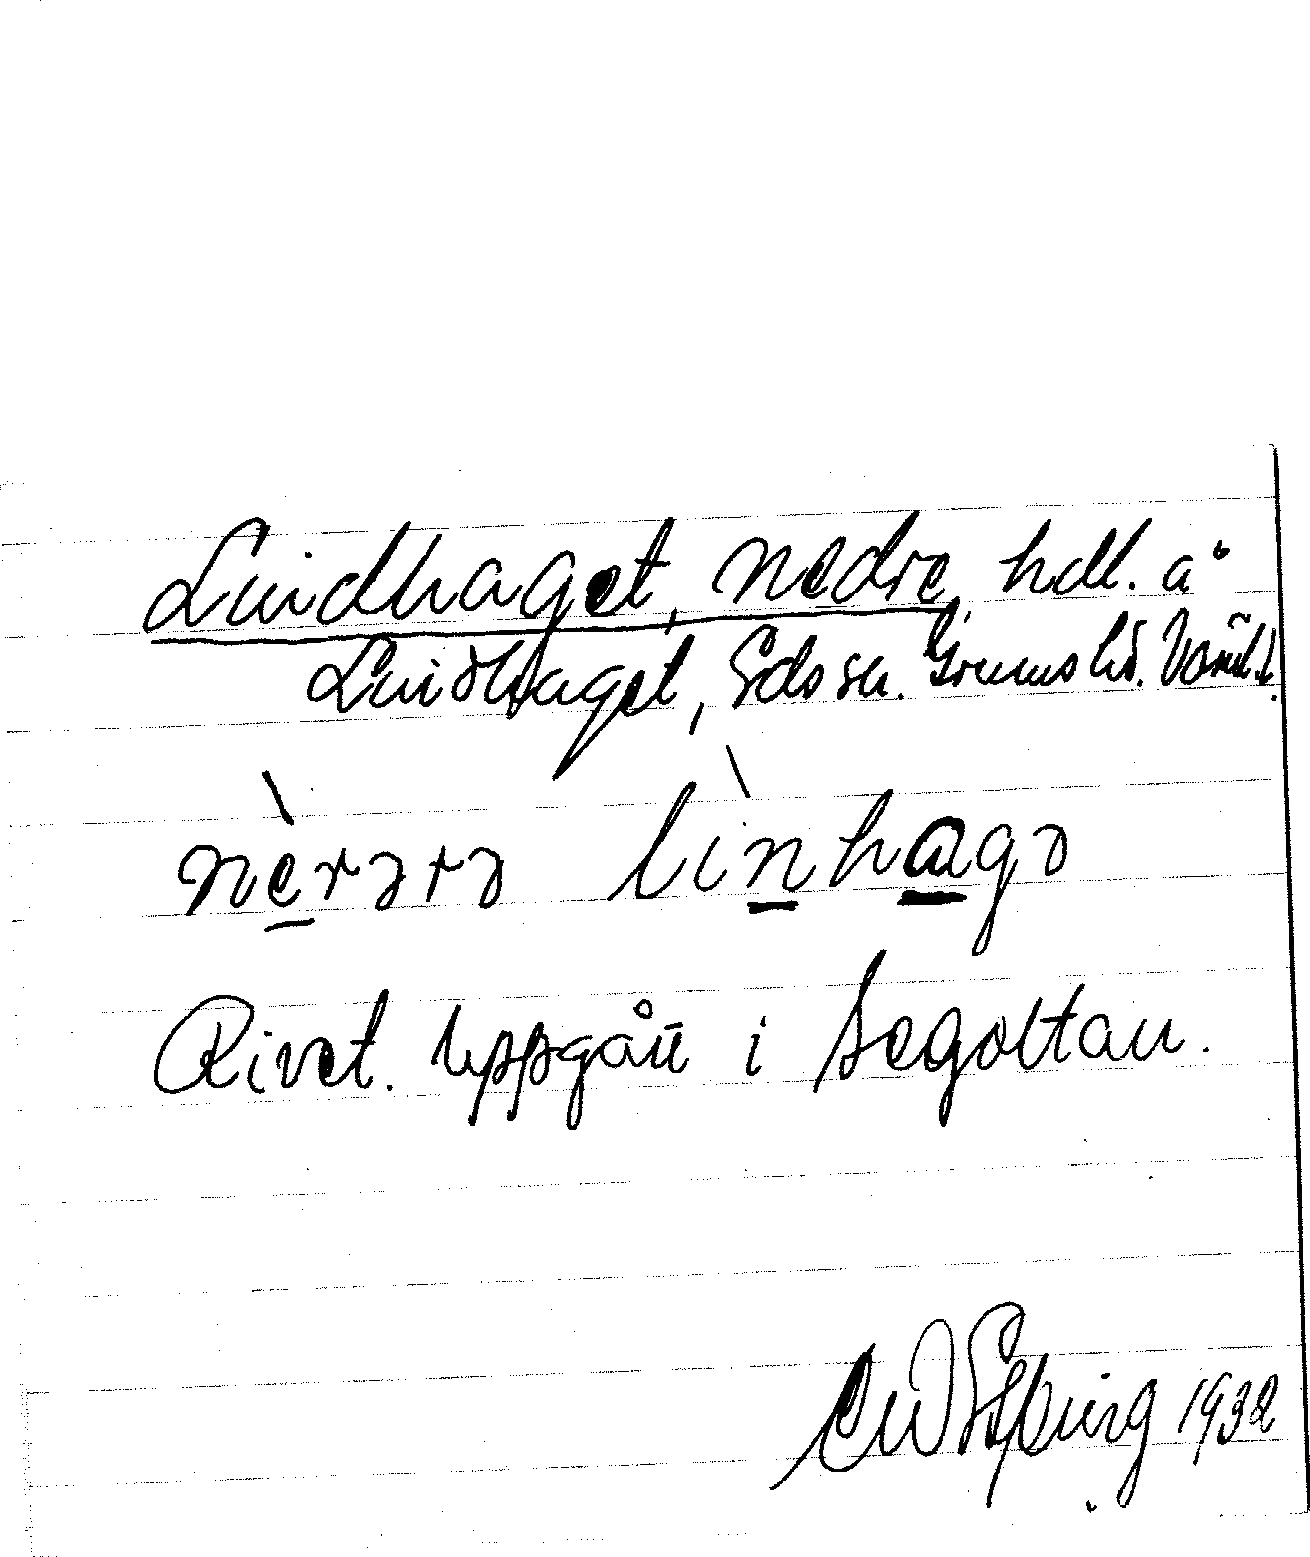 Lindhaget, nedre, hdl. å
Lindhaget, Eds sn. Grums hd. Värml.
nèrərə lìnhagə
Rivet. Uppgån i Segoltan.
1932